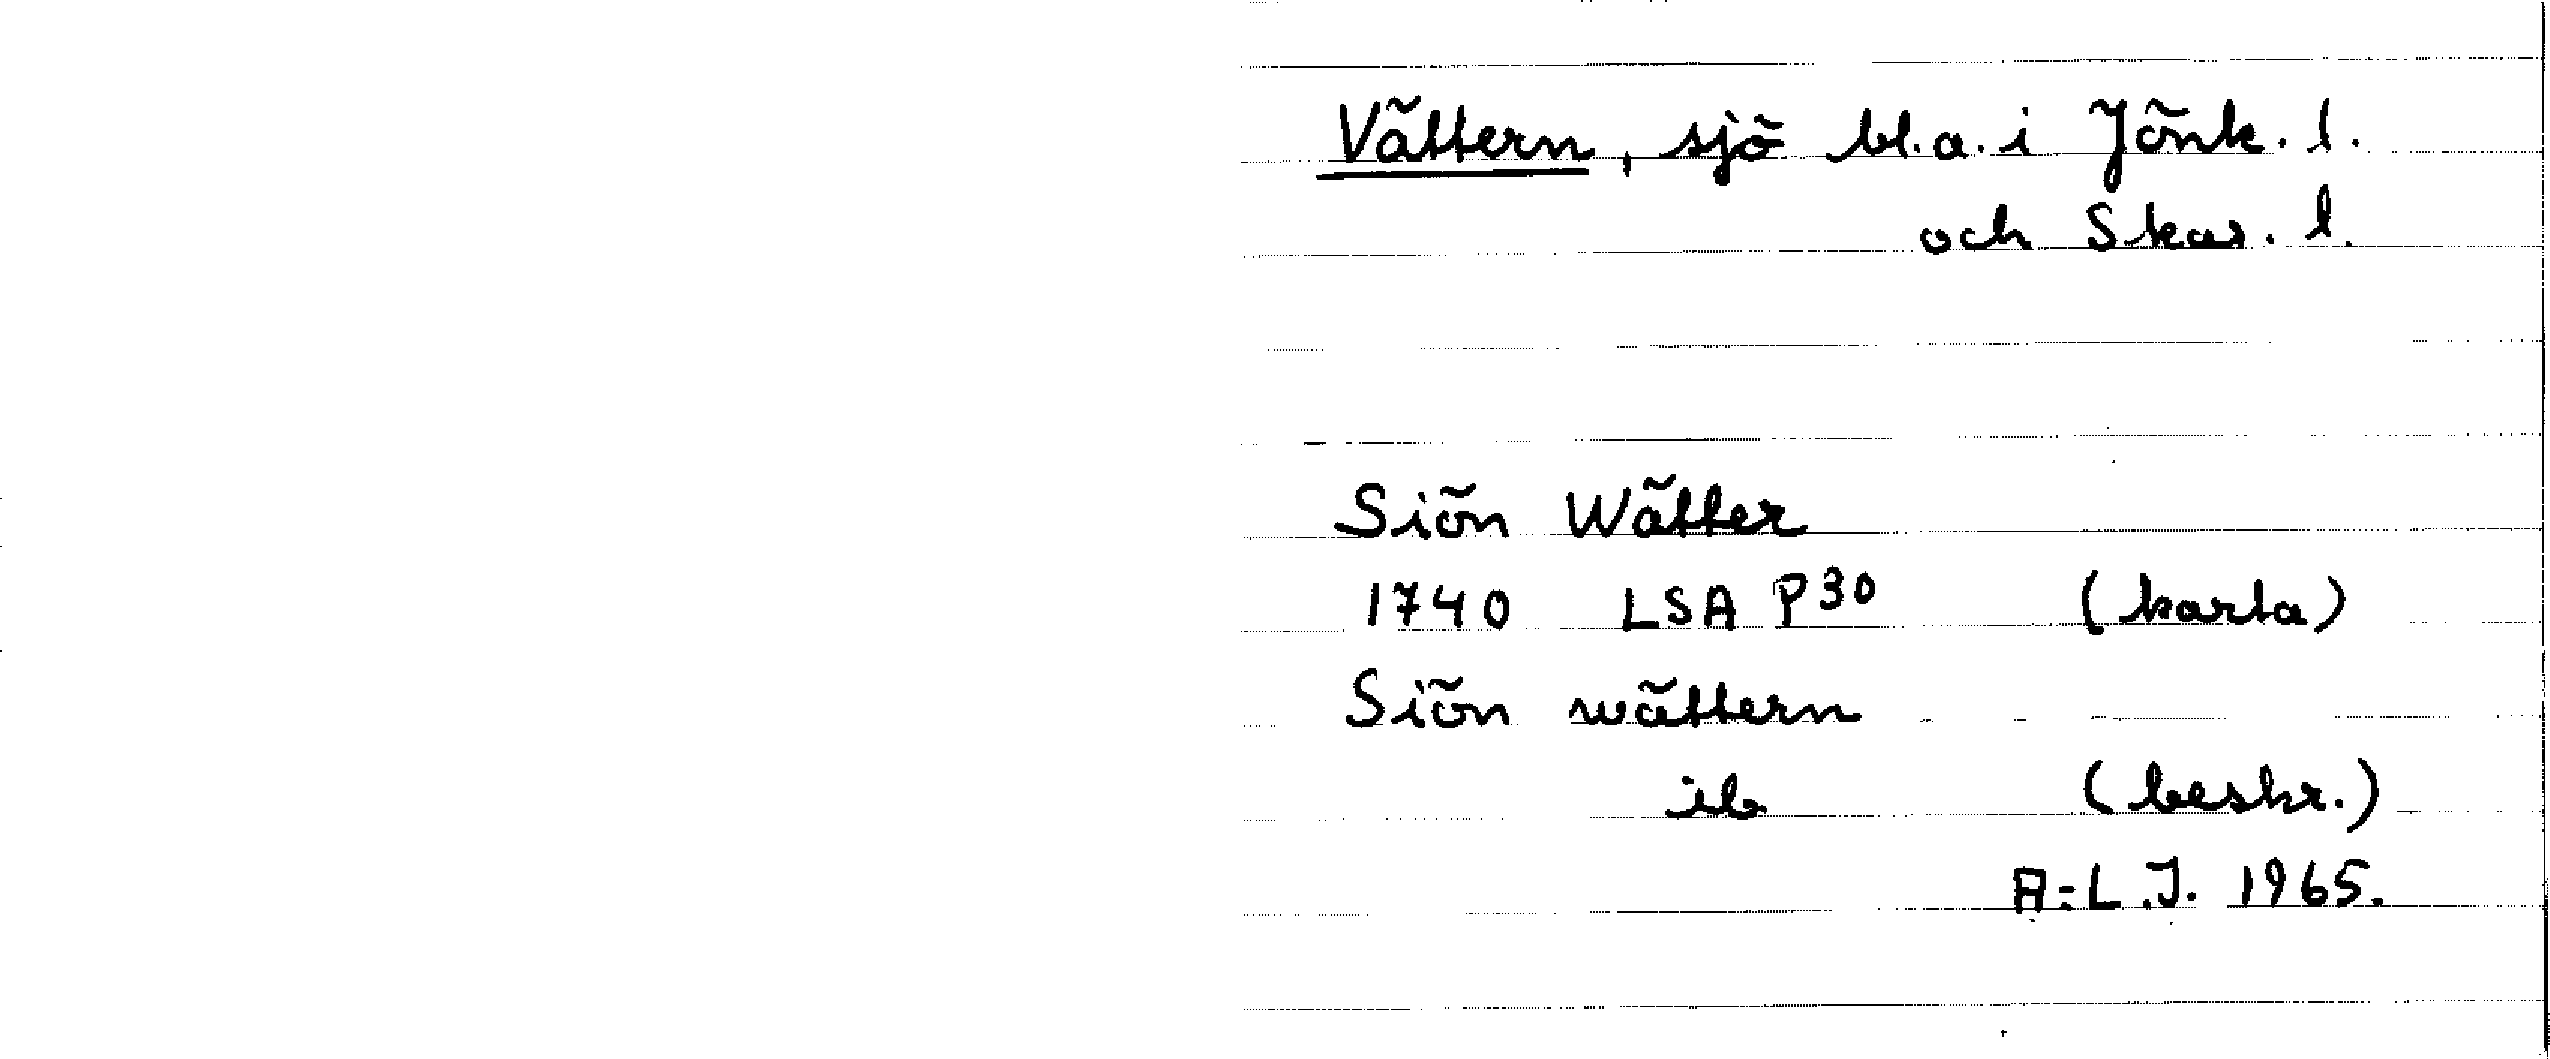 Vättern, sjö bl.a. i Jönk. l.
och Skar. l.
Siön Wätter
1740 LSA P30 (karta)
Siön wättern
ib (beskr.)
A-L.J. 1965.